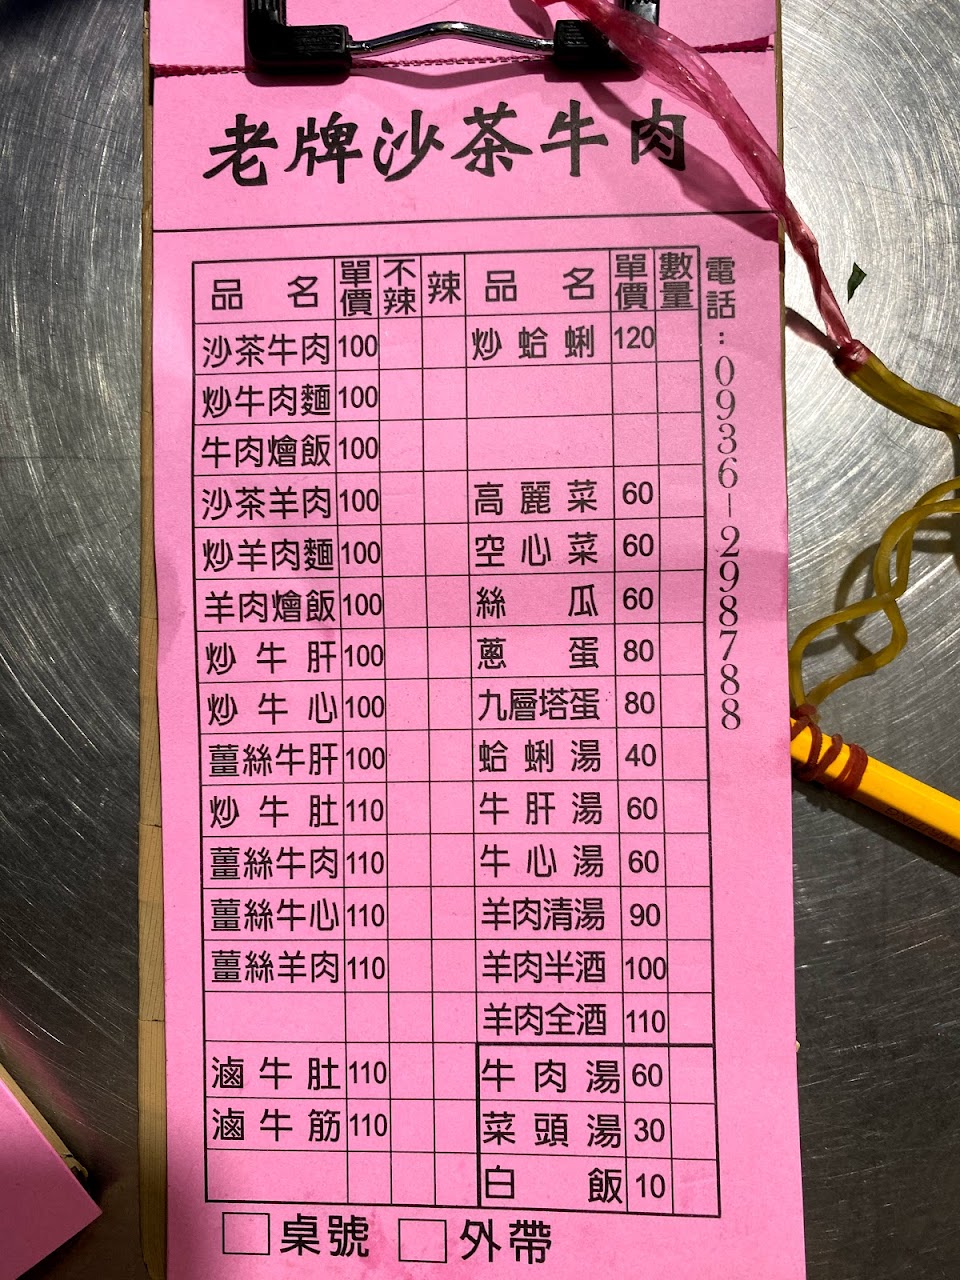 老牌沙茶牛肉
品名 單價 不辣 辣 品名 單價 數量
沙茶牛肉 100 炒蛤蜊 120
炒牛肉麵 100
牛肉燴飯 100
沙茶羊肉 100 高麗菜 60
炒羊肉麵 100 空心菜 60
羊肉燴飯 100 絲瓜 60
炒牛肝 100 蔥蛋 80
炒牛心 100 九層塔蛋 80
薑絲牛肝 100 蛤蜊湯 40
炒牛肚 110 牛肝湯 60
薑絲牛肉 110 牛心湯 60
薑絲牛心 110 羊肉清湯 90
薑絲羊肉 110 羊肉半酒 100
羊肉全酒 110
滷牛肚 110 牛肉湯 60
滷牛筋 110 菜頭湯 30
白飯 10
電話：0936-298788
桌號 外帶